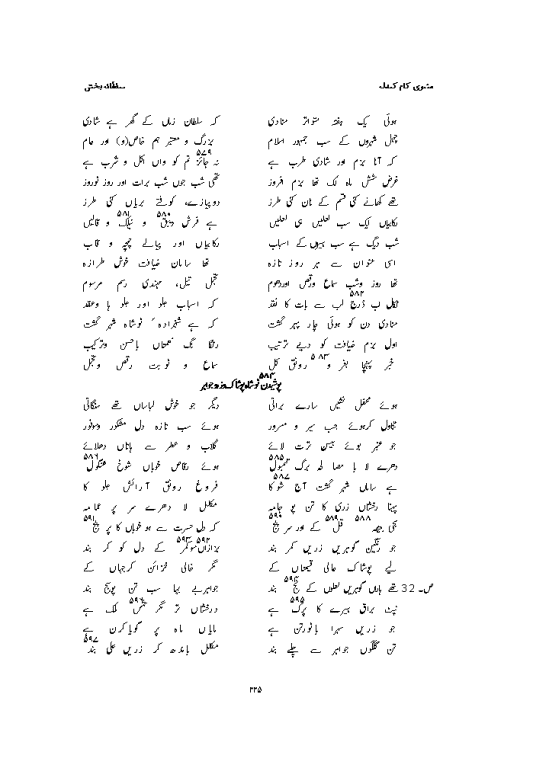 مثنوی کام کندلہ سلطان بخشی
ہوئی یک ہفتہ متواتر منادی کہ سلطان زماں کے گھر ہے شادی
چہل شہروں کے سب جمہور اسلام بزرگ و معتبر ہم خاص(و) اور عام
کہ آنا بزم اور شادی طرب ہے نہ جائز ۵۷۹ تم کو واں اکل و شرب ہے
غرض شش ماہ لک تھا بزم افروز تھی شب جوں شب برات اور روز نوروز
تھے کھانے کئی قسم کے نان کئی طرز دوپیازے، کوفتے بریاں کئی طرز
رکابیاں لیک سب لعلیں ہی لعلیں ہے فرش دیبق ۵۸۰ و ۵۸۱ و قالیں
شب دیگ ہے سب کے اسباب رکابیاں اور پیالے چمچہ و قاب
اسی عنوان سے ہر روز تازہ تھا سامان ضیافت خوش طرازہ
تھا روز و شب سماع و رقص اور دھوم تجمل تیل، مہندی رسم مرسوم
لب ڈرج ۵۸۲ لب سے بات کا نقد کہ اسباب جلو اور جلو با وعقد
منادی دن کو ہوئی چار پہر گشت کہ ہے شہزادہ نوشاہ شہر گشت
اول بزم ضیافت کو دیے ترتیب نعمتاں باحسن وترکیب
خبر پہنچا و ۵۸۳ رونق کل سماع و نوبت رقص وتجمل
پوشیدن نوشاہ پوشاک ۵۸۴ وجواہر
ہوئے محفل نشیں سارے براتی دیگر جو خوش لباساں تھے سنگاتی
تناول کرہوئے جب سیر و مسرور ہوئے سب تازہ دل مشکور وموفور
جو عنبر بوئے ترت لائے گلاب و عطر سے ہاتاں دھلائے
دھرے لا با مصالحہ برگ تنبول ۵۸۵ ہوئے رقاص خوباں شوخ ۵۸۶
ہے ساماں شہر گشت آج شوکا ۵۸۷ فروغ رونق آرائش جلو کا
پہنا رخشاں زری کا تن پو جامہ مکلل لا دھرے سر پر عمامہ
۵۸۸ ۵۸۹ کے اور سر ۵۹۰ کہ دل حسرت سے ہو خوباں کا پر ۵۹۱
جو رنگین گوہریں زریں کمر بند ۵۹۲ ۵۹۳ کے دل کو کر بند
لیے پوشاک عالی قیمتاں کے مگر خالی خزائن کرجہاں کے
ص۔ 32 تھے باہاں گوہریں لعلوں کے ۵۹۴ بند جواہر بے بہا سب تن بند
نپٹ براق ہیرے کا ۵۹۵ ہے درخشاں تر مگر ۵۹۶ لک ہے
جو زریں سہرا ہے ماہ پر گویا کرن ہے
تن گلگوں جواہر سے بند مکلل باندھ کر زریں علی بند ۵۹۷
۲۲۵